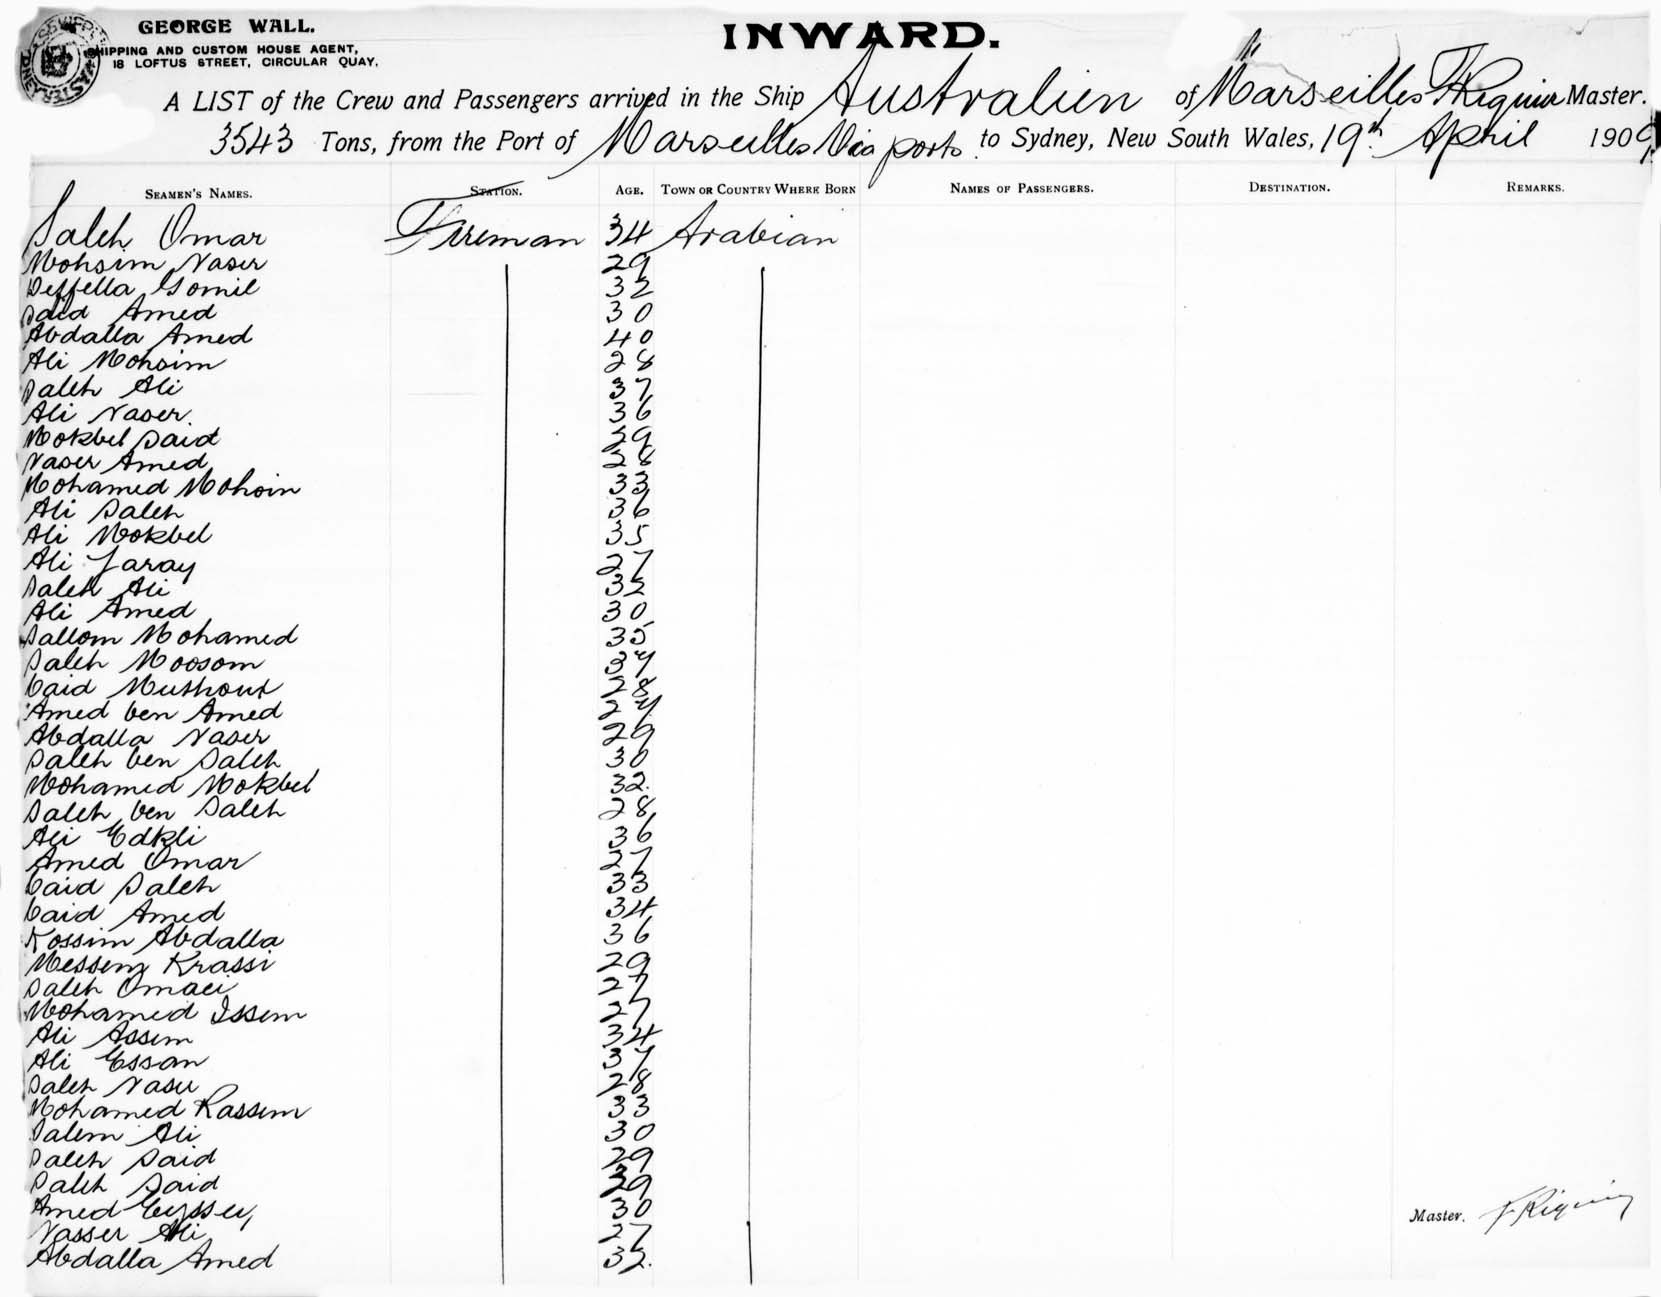 GEORGE WALL.
SHIPPING AND CUSTOM HOUSE AGENT,
18 LOFTUS STREET, CIRCULAR QUAY.
INWARD.
A LIST of the Crew and Passengers arrived in the Ship Australien of Marseilles Master.
3543 Tons, from the Port of Marseilles Via ports to Sydney, New South Wales, 19th April 1909
SEAMEN'S NAMES. STATION. AGE. TOWN OR COUNTRY WHERE BORN NAMES OF PASSENGERS. DESTINATION. REMARKS.
Saleh Omar Fireman 34 Arabian
Mohsim Naser 29
Deffella Gomil 32
Said Amed 30
Abdalla Amed 40
Ali Mohsim 28
Saleh Ali 37
Ali Naser. 36
Mokbel Said 29
Naser Amed 28
Mohamed Mohsin 33
Ali Saleh 36
Ali Mokbel 35
Ali Jaray 27
Saleh Ali 32
Ali Amed 30
Sallom Mohamed 35
Saleh Moosom 37
Caid Muthout 28
Amed ben Amed 27
Abdalla Naser 29
Saleh ben Saleh 30
Mohamed Mokbel 32.
Saleh ben Saleh 28
Ali Edkli 36
Amed Omar 27
Caid Saleh 33
Caid Amed 34
Kossim Abdalla 36
Messem Krassi 29
Saleh Omaei 27
Mohamed Issem 27
Ali Assem 34
Ali Essan 37
Saleh Naser 28
Mohamed Kassem 33
Salem Ali 30
Saleh Said 29
Saleh Said 29
Amed 30
Nasser Ali 27
Abdalla Amed 32.
Master.